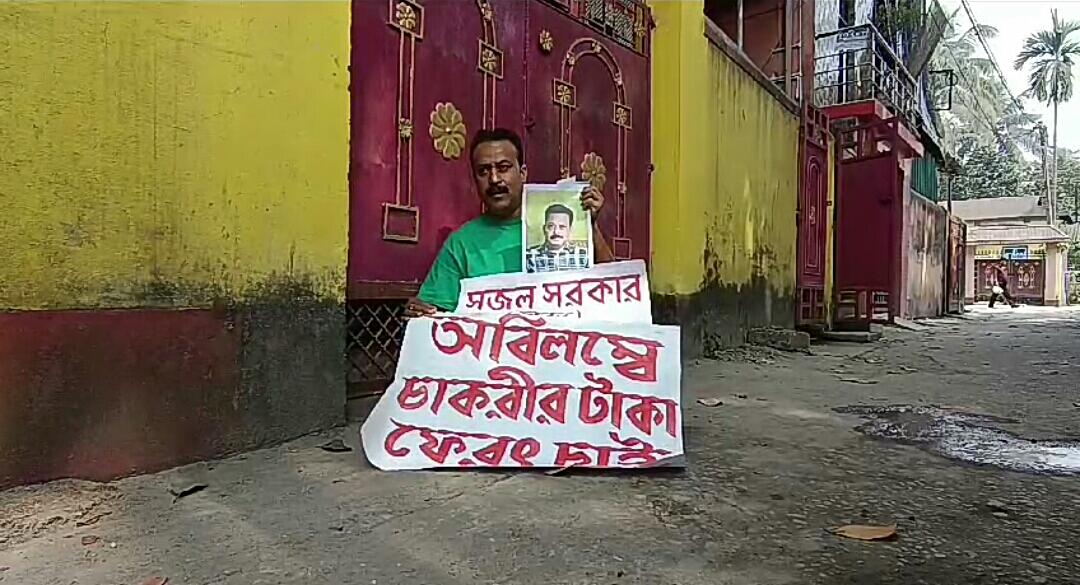 সজল সরকার
অবিলম্বে
চাকরীর টাকা
ফেরৎ চাই